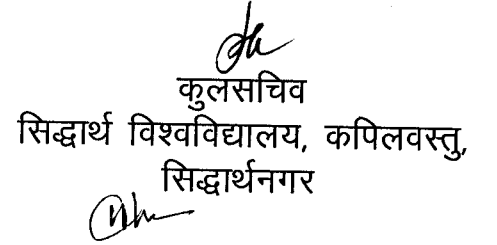 कुलसचिव
सिद्धार्थ विश्वविद्यालय, कपिलवस्तु,
सिद्धार्थनगर